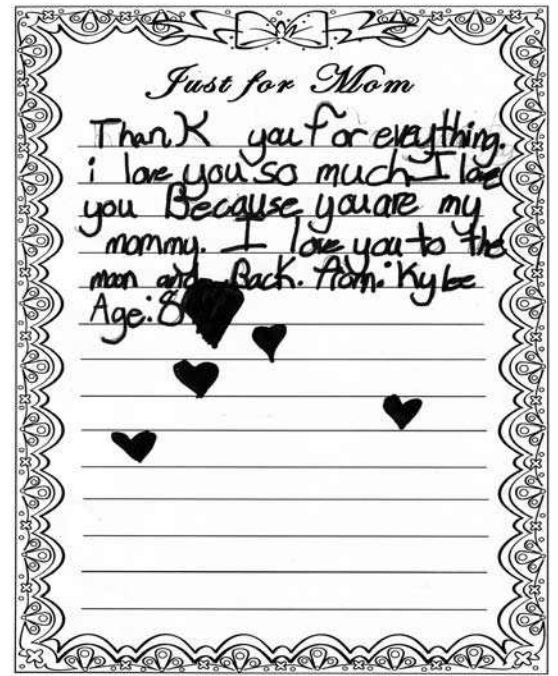 Just for Mom
Thank you for eveything.
i love you so much I love
you Because you are my
mommy. I love you to the
moon and Back. From: Kylee
Age: 8